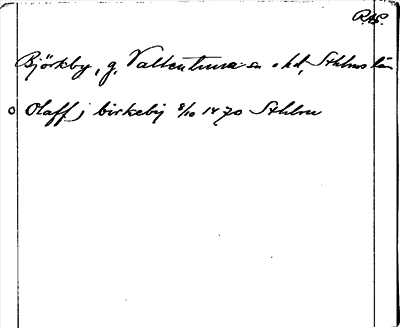 RAP.
Björkby, g. Vallentuna sn o hd, Sthlms län
o Olaff j birkeby 8/10 1470 Sthlm